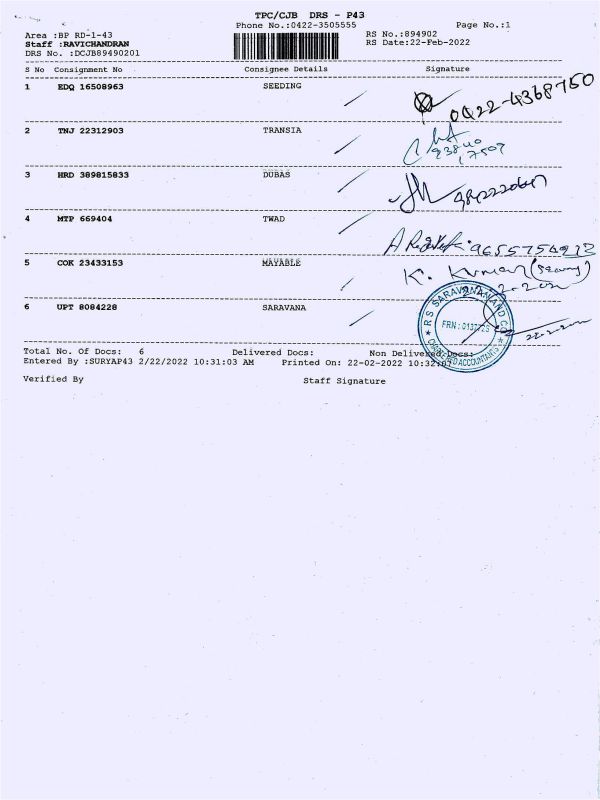 TPC/CJB DRS - P43
Phone No.:0422-3505555 Page No.:1
Area :BP RD-1-43 RS No.:894902
Staff :RAVICHANDRAN RS Date:22-Feb-2022
DRS No. :DCJB89490201
S No Consignment No Consignee Details Signature
1 EDQ 16508963 SEEDING
0422-4368750
2 TNJ 22312903 TRANSIA
3 HRD 389815833 DUBAS
4 MTP 669404 TWAD
9655754212
5 COK 23433153 MAYABLE
K. Kumar
6 UPT 8084228 SARAVANA
R S SARAVANAN AND CO
FRN:
CHARTERED ACCOUNTANTS
22-2-2022
Total No. Of Docs: 6 Delivered Docs: Non Delivered Docs:
Entered By :SURYAP43 2/22/2022 10:31:03 AM Printed On: 22-02-2022 10:32:
Verified By Staff Signature